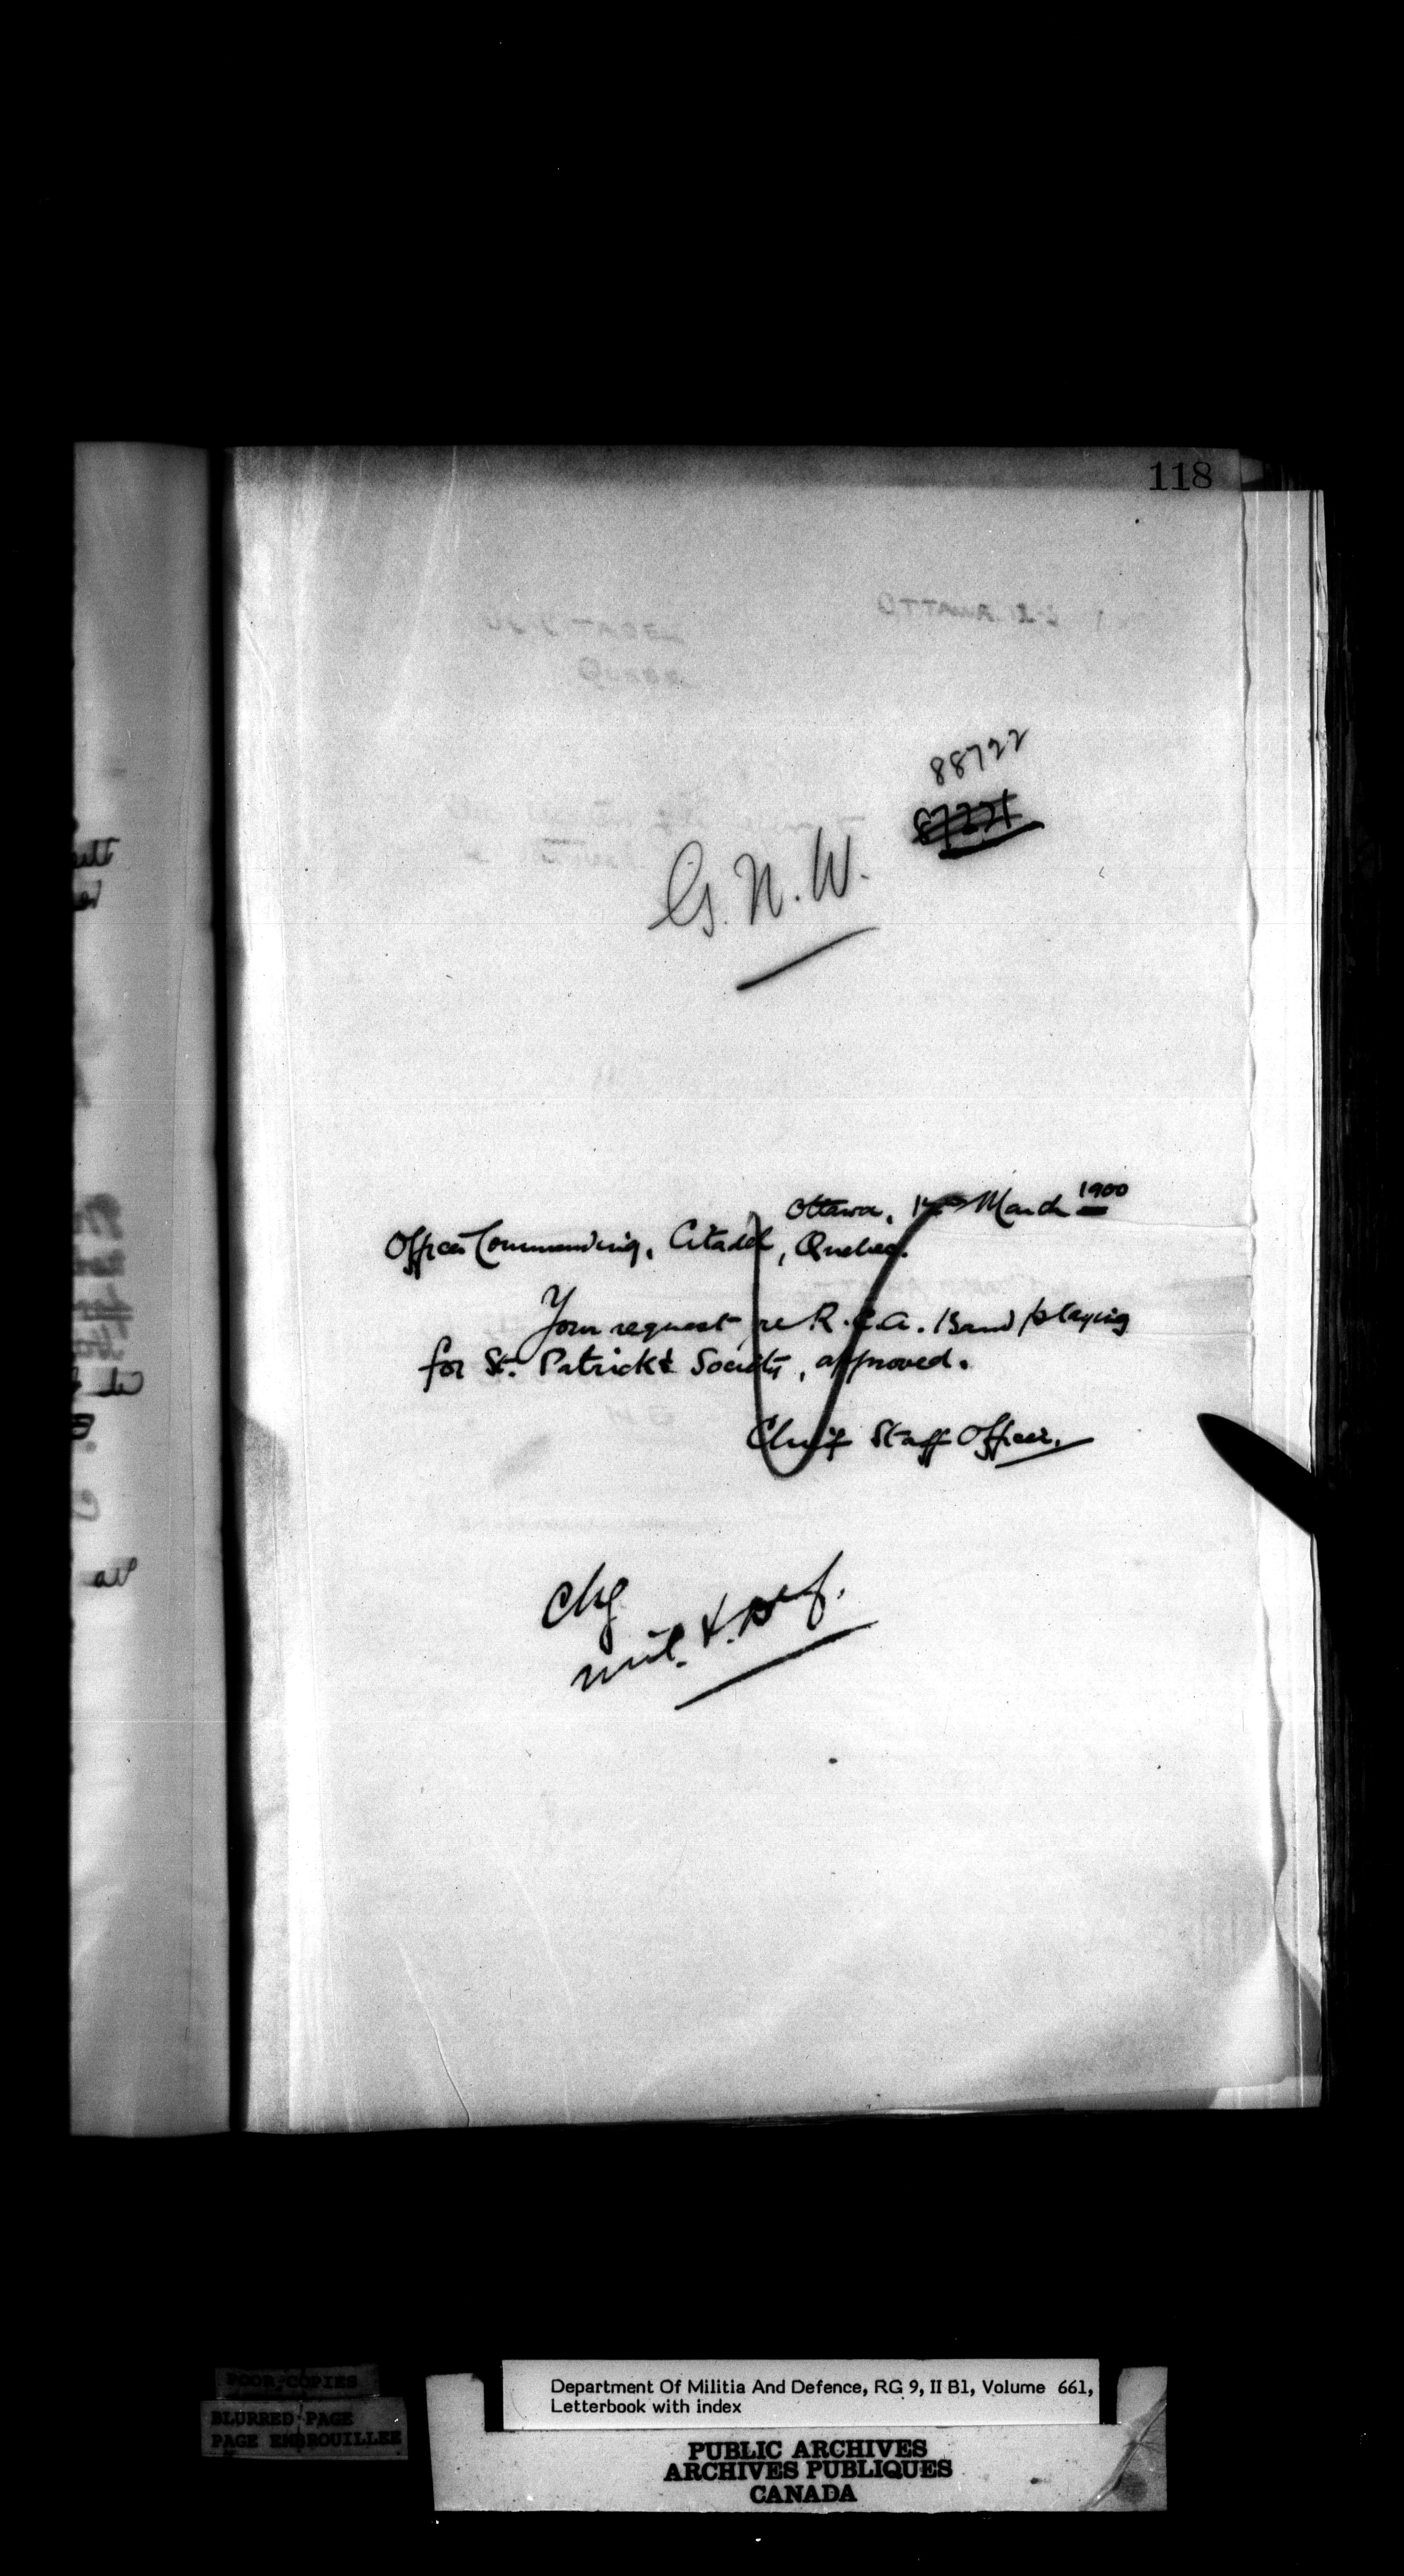 118
OTTAWA
88722
87221
G.N.W.
Ottawa, March 1900
Officer Commanding, Citadel, Quebec.
Your request re R.C.A. Band playing
for St. Patrick's Society, approved.
Chief Staff Officer.
Chg
Mil. & Def.
POOR COPIES
BLURRED PAGE
PAGE EMBROUILLEE
Department Of Militia And Defence, RG 9, II B1, Volume 661,
Letterbook with index
PUBLIC ARCHIVES
ARCHIVES PUBLIQUES
CANADA